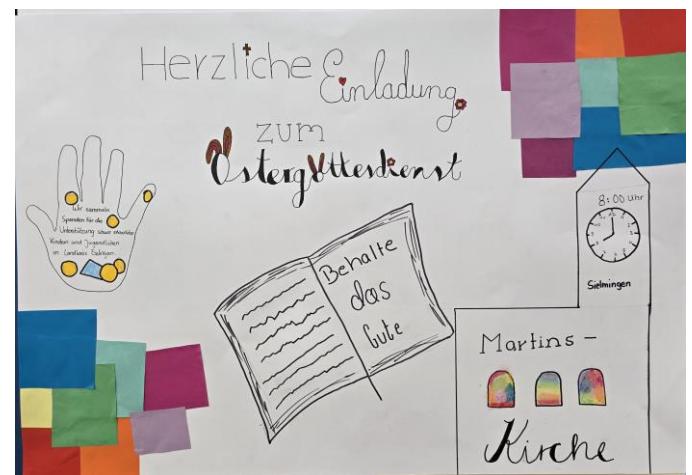 Herzliche Einladung
zum
Ostergottesdienst
Wir sammeln
Spenden für die
Unterstützung
Kindern und Jugendlichen
im Landkreis Esslingen
Behalte
das
Gute
8:00 Uhr
Sielmingen
Martins-
Kirche